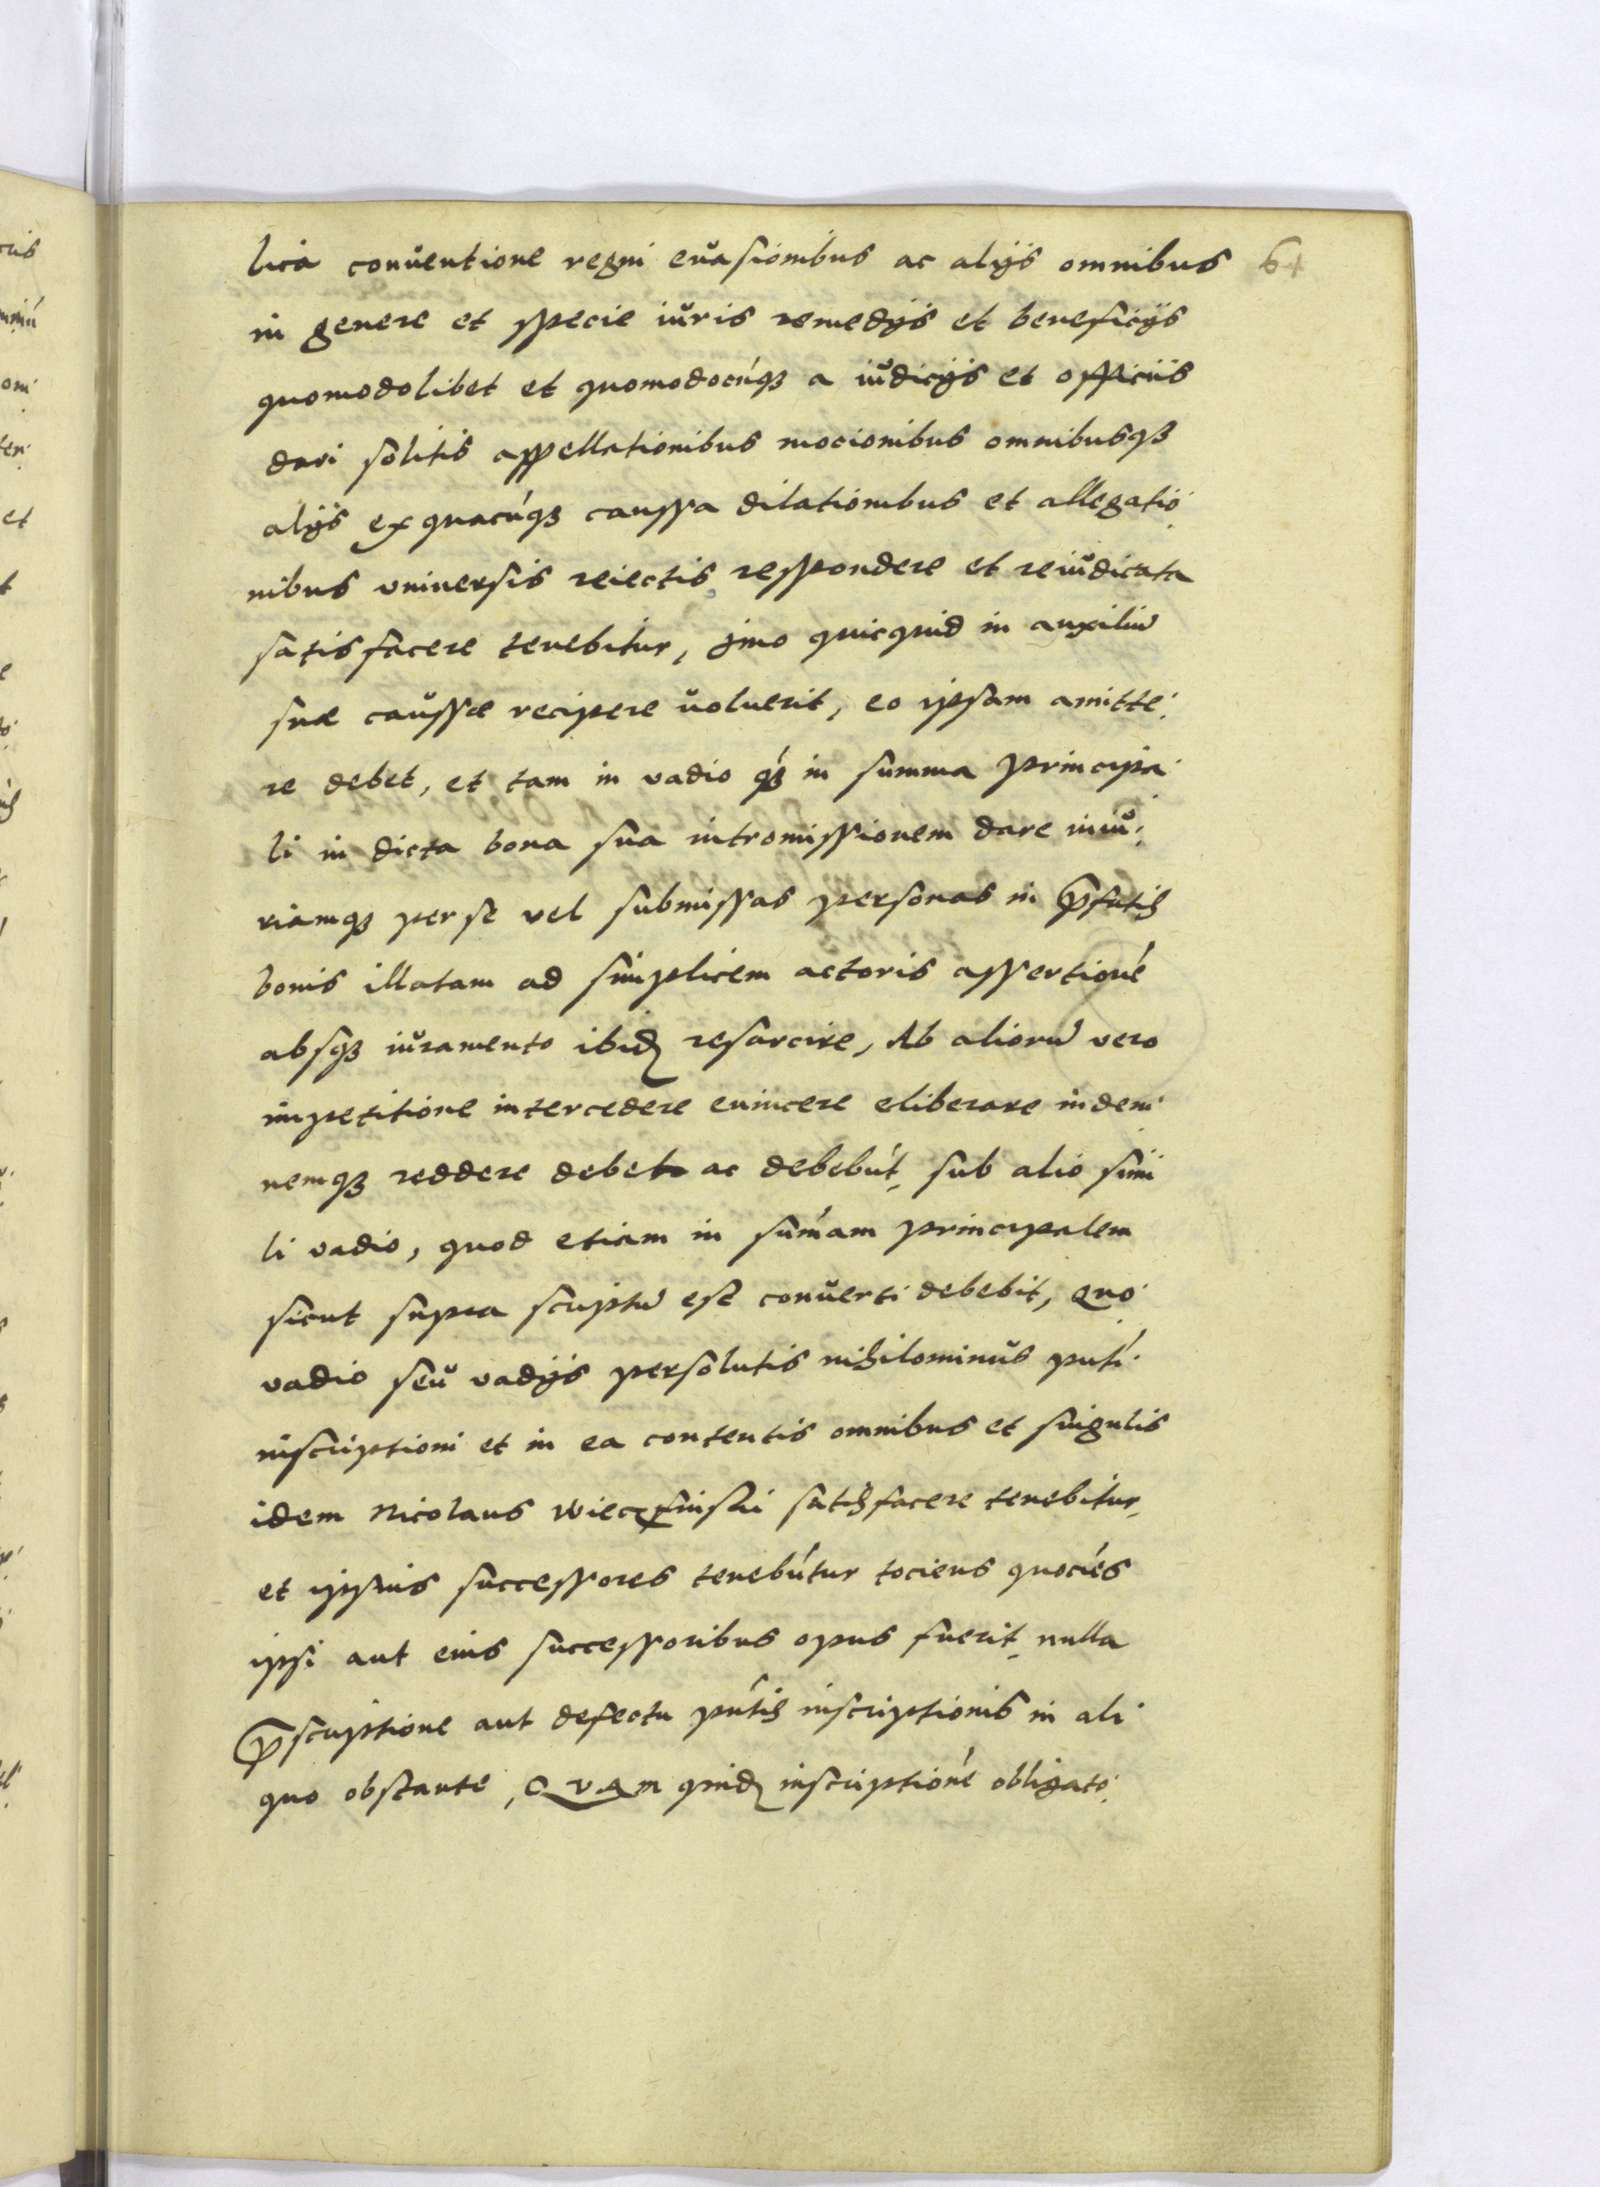 lica conuentione regni euasionibus ac alijs omnibus 64
in genere et specie iuris remedijs et beneficijs
quomodolibet et quomodocúqꝫ a iudicijs et officiis
dari solitis appellationibus mocionibus omnibusqꝫ
alijs ex quacúqꝫ caussa dilationibus et allegatio
nibus vniuersis reiectis respondere et reiudicata
satisfacere tenebitur, jmo quicquid in auxiliū
suæ caussæ recipere uoluerit, eo ipsam amitte
re debet, et tam in vadio qꝫ́ in summa principa
li in dicta bona sua intromissionem dare iniu
riamqꝫ per se vel submissas personas in p̄fatis
bonis illatam ad simplicem actoris assertioné
absqꝫ iuramento ibidꝫ resarcire, Ab aliorū vero
impetitione intercedere euincere eliberare indem
nemqꝫ reddere debet ac debebút, sub alio simi
li vadio, quod etiam in sum̄am principalem
sicut supra scriptū est conuerti debebit, Quo
vadio seu vadijs persolutis nihilominus pn̄ti
inscriptioni et in ea contentis omnibus et singulis
idem Nicolaus Wieczfinski satisfacere tenebitur,
et ipsius successores tenebútur tociens quociés
ipsi aut eius successoribus opus fuerit, nulla
p̄scriptione aut defectu pn̄tis inscriptionis in ali
quo obstante, QVAM quidꝫ inscriptioné obligato